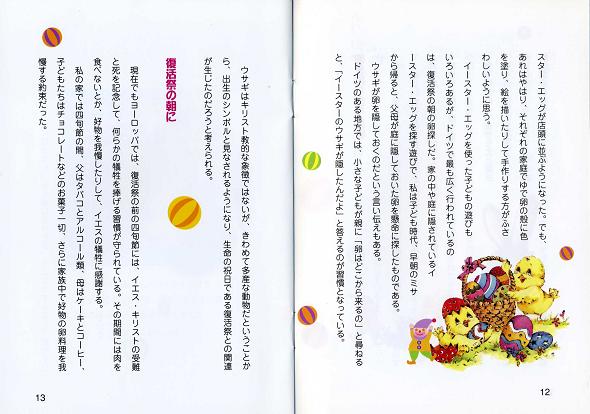 スター・エッグが店頭に並ぶようになった。でも、
あれはやはり、それぞれの家庭でゆで卵の殻に色
を塗り、絵を描いたりして手作りする方がふさ
わしいように思う。
イースター・エッグを使った子どもの遊びも
いろいろあるが、ドイツで最も広く行われているの
は、復活祭の朝の卵探しだ。家の中や庭に隠されているイ
ースター・エッグを探す遊びで、私は子ども時代、早朝のミサ
から帰ると、父母が庭に隠しておいた卵を懸命に探したものである。
ウサギが卵を隠しておくのだという言い伝えもある。
ドイツのある地方では、小さな子どもが親に「卵はどこから来るの」と尋ねる
と、「イースターのウサギが隠したんだよ」と答えるのが習慣となっている。
12
ウサギはキリスト教的な象徴ではないが、きわめて多産な動物だということか
ら、出生のシンボルと見なされるようになり、生命の祝日である復活祭との関連
が生じたのだろうと考えられる。
復活祭の朝に
現在でもヨーロッパでは、復活祭の前の四旬節には、イエス・キリストの受難
と死を記念して、何らかの犠牲を捧げる習慣が守られている。その期間には肉を
食べないとか、好物を我慢したりして、イエスの犠牲に感謝する。
私の家では四旬節の間、父はタバコとアルコール類、母はケーキとコーヒー、
子どもたちはチョコレートなどのお菓子一切、さらに家族中で好物の卵料理を我
慢する約束だった。
13